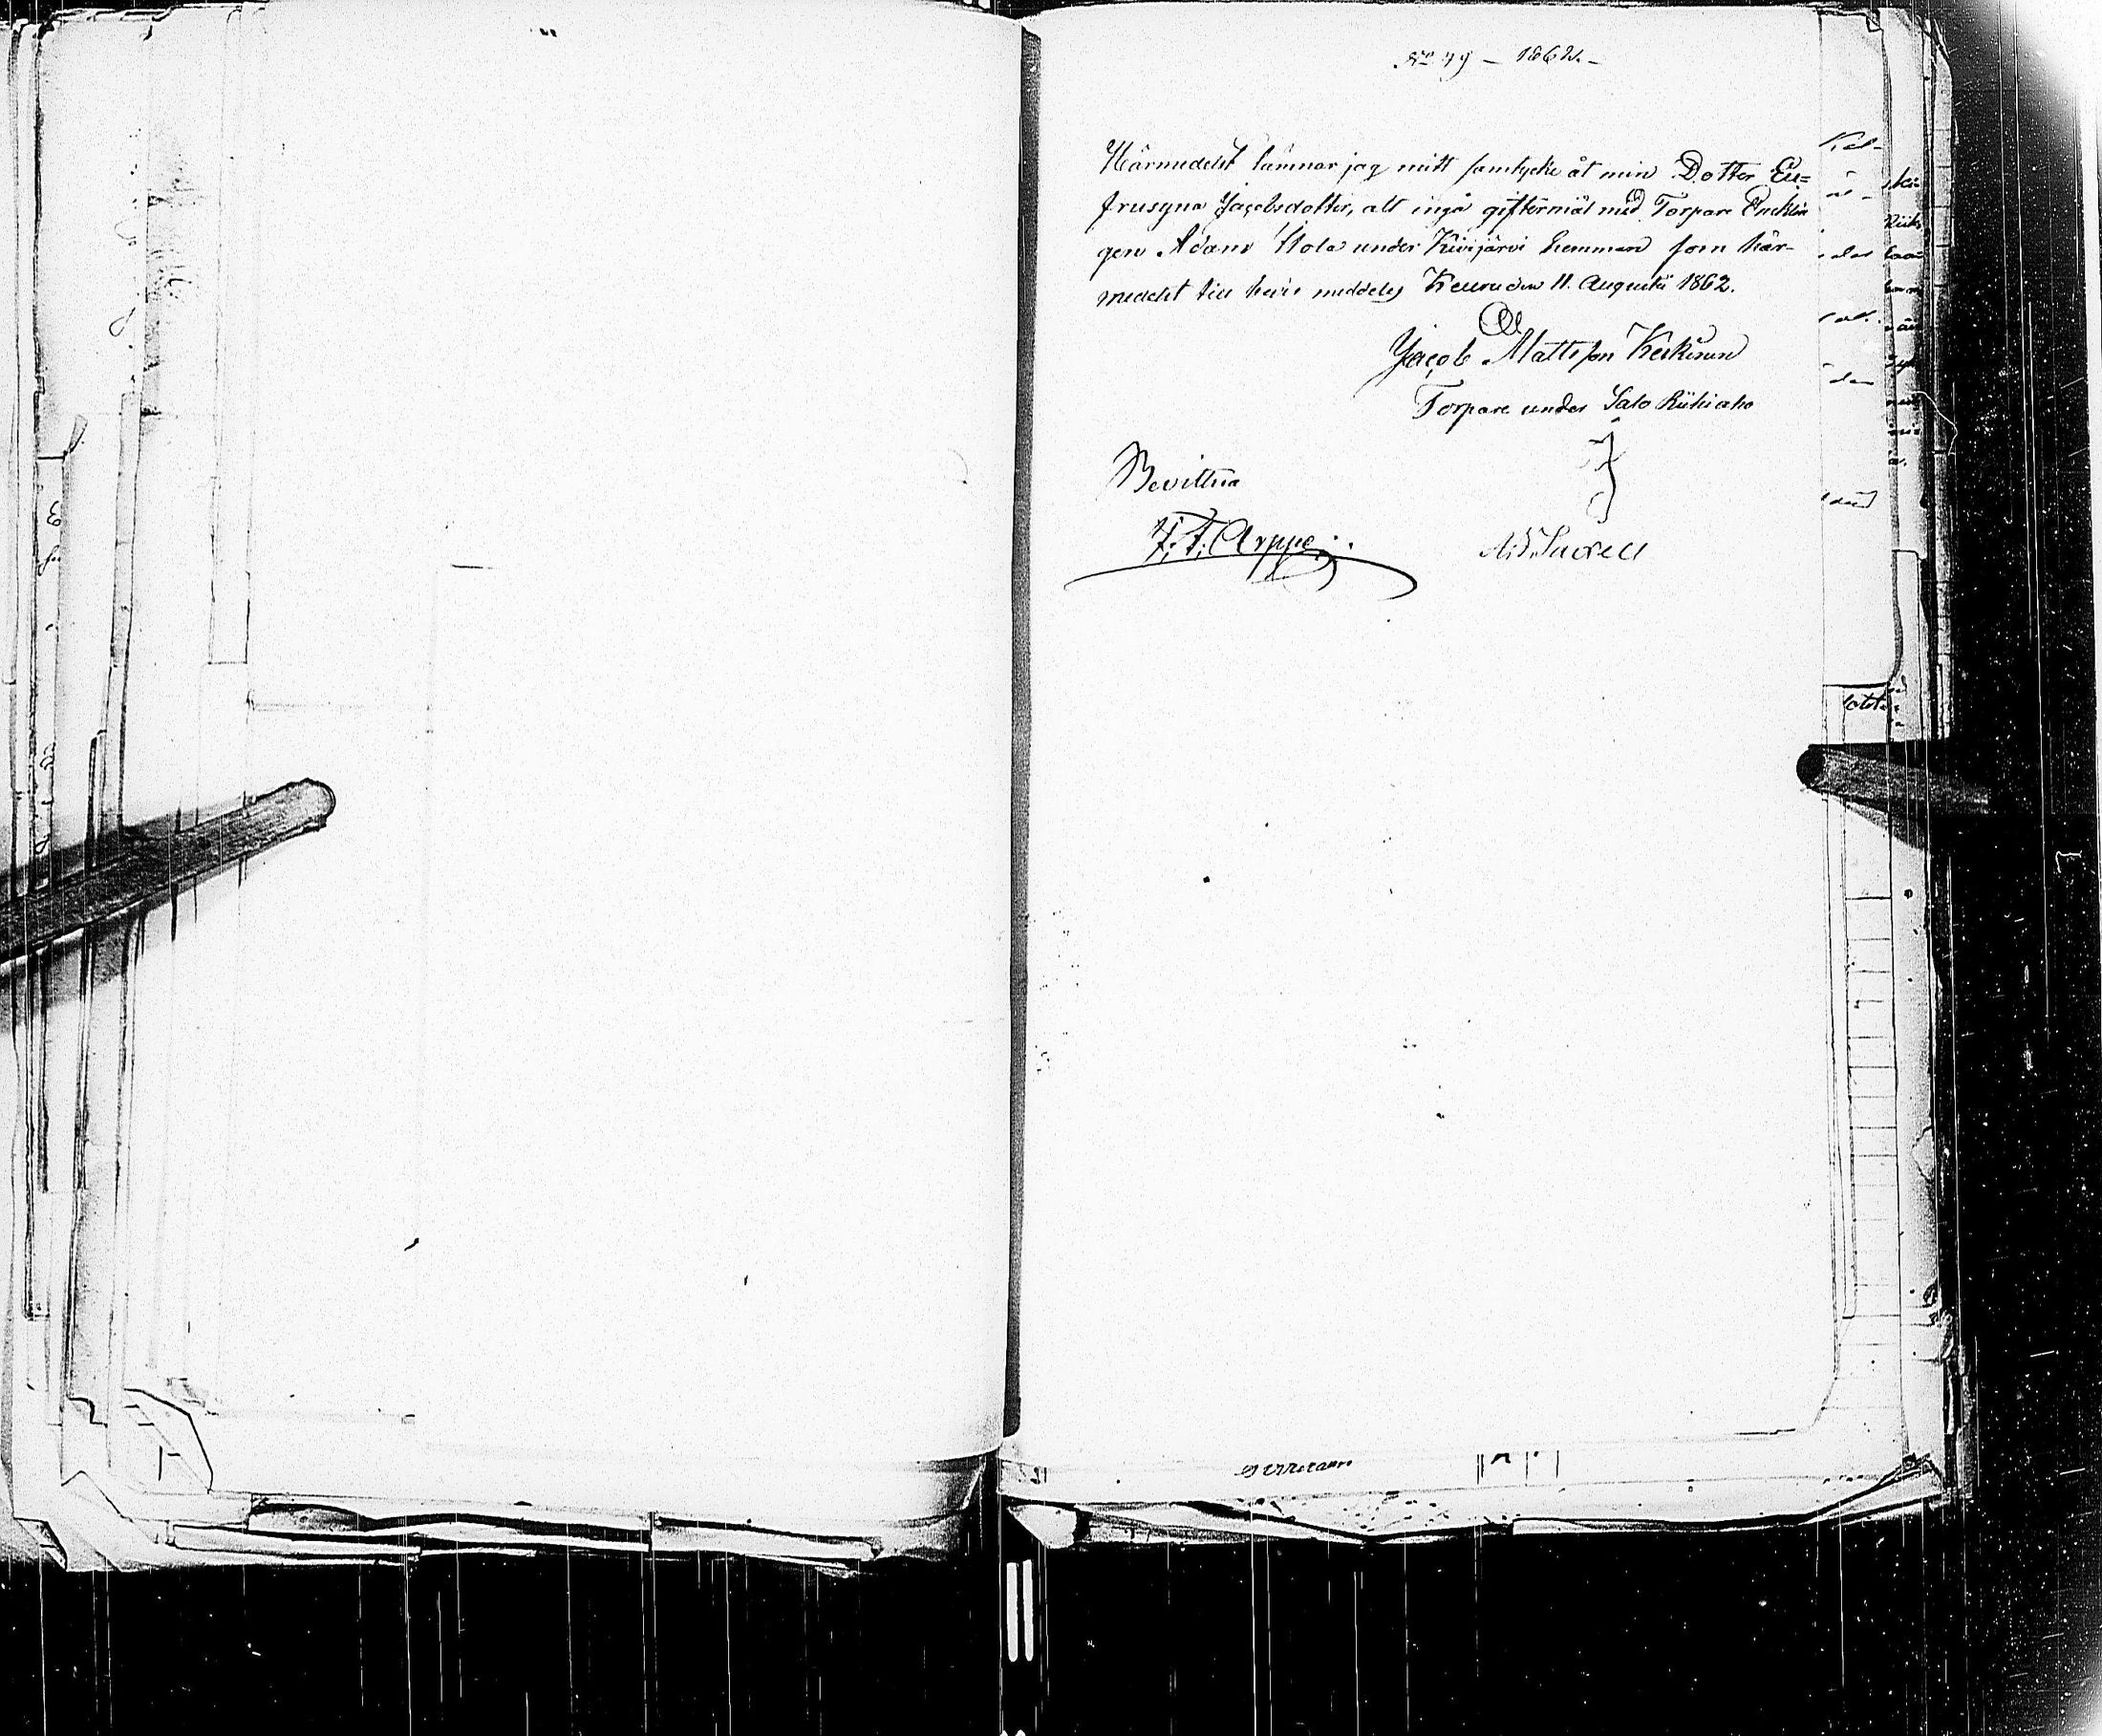 No 49 – 1862. –
Härmedelst lämnar jag mitt samtycke åt min Dotter Eu=
frusyna Jacobsdotter, att ingå giftermål med Torpare Encklin
gen Adam Hola under Kivijärvi hemman som här-
medelst till bevis meddelas Keuru den 11. Augusti 1862.
Jacob Mattsson Keskinen
Torpare under Salo Riihiaho
Bevittna
F. F. Arppe